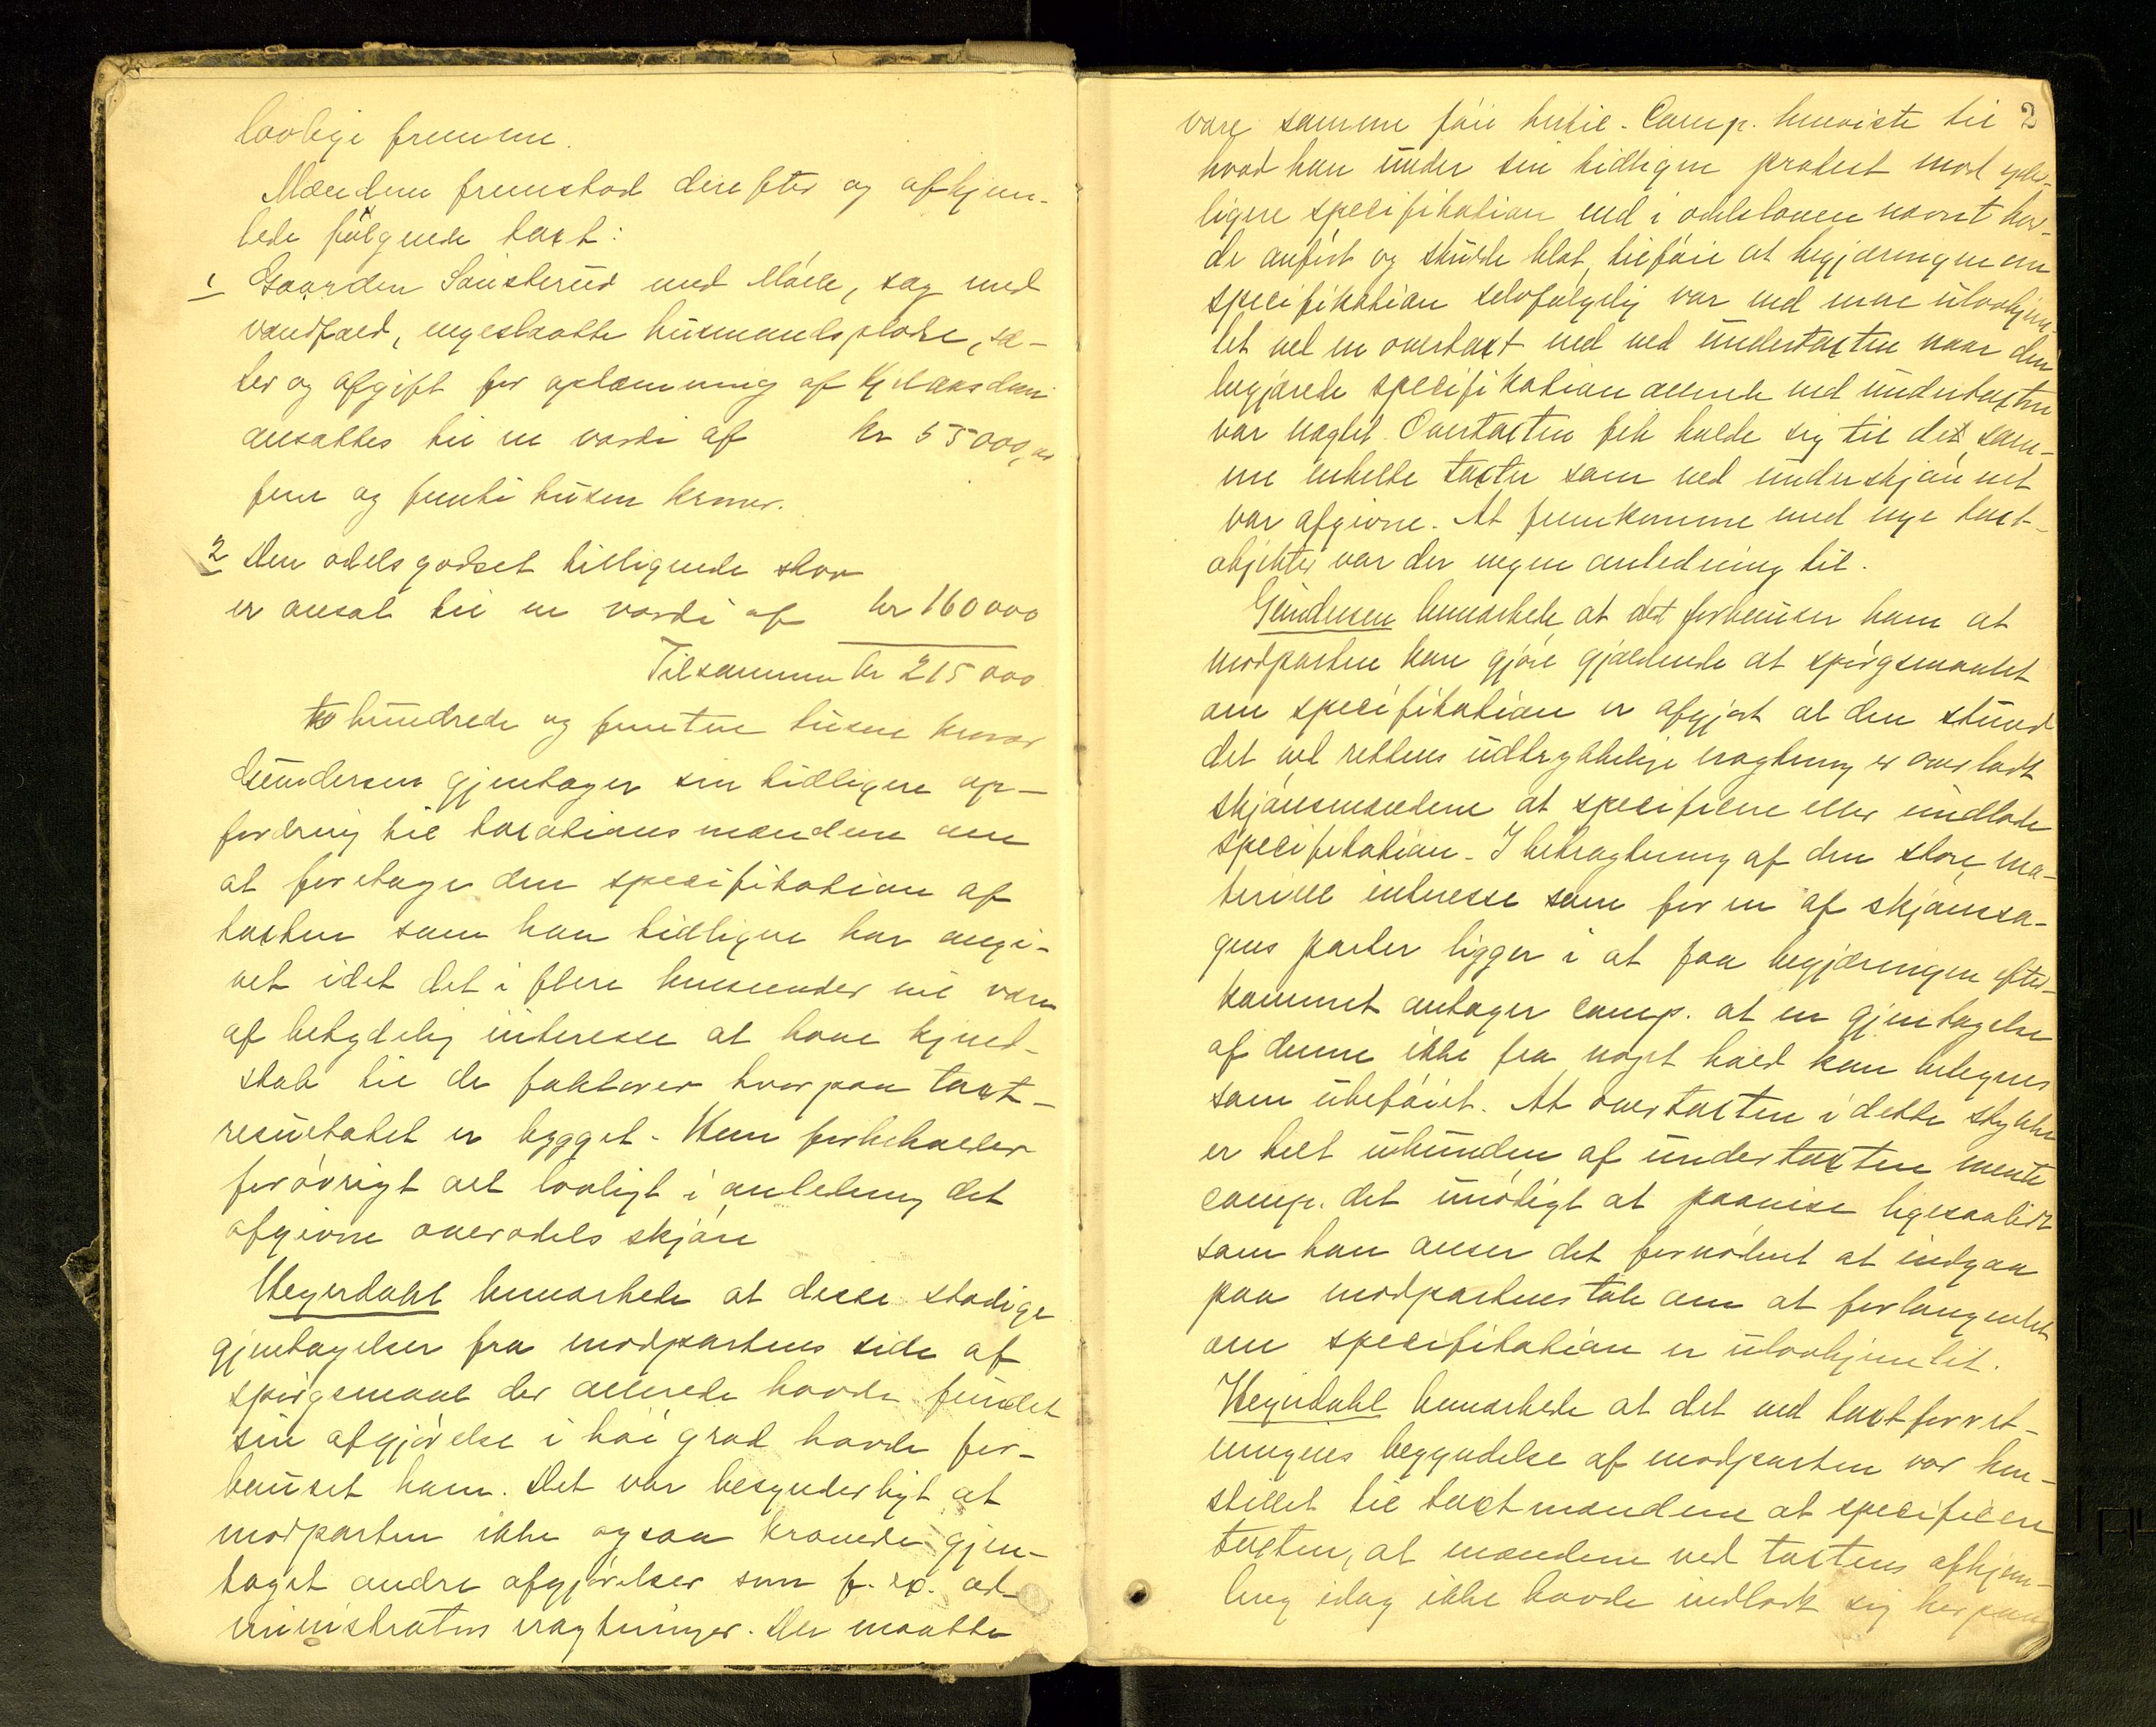 lovlige fremme.
Mændene fremstod derefter og afhjem-
lede følgende taxt:
1 Gaarden Sønsterud med Mølle, sag med
vandfald, engeslaatte husmandsplase, sæ-
ter og afgift for opdæmning af Kjelaasdam
ansattes til en værdi af kr 55000,00
fem og femti tusen kroner.
2 Den odelsgodset tilliggende skov
er ansat til en værdi af kr 160000
Tilsammen kr 215000
to hundrede og femten tusen kroner
Gundersen gjentager sin tidligere op-
fordring til taxationsmændene om
at foretage den specifikation af
taxten som han tidligere har angi-
vet idet det i flere henseender vil være
af betydelig interesse at have kjend-
skab til de faktorer hvorpaa taxt-
resultatet er bygget. Han forbeholder
forøvrigt alt lovligt i anledning det
afgivne overodelsskjøn
Heyerdahl bemærkede at disse stadige
gjentagelser fra modpartens side af
spørgsmaal der allerede havde fundet
sin afgjørelse i høi grad havde for-
bauset ham. Det var besynderligt at
modparten ikke ogsaa krævede gjen-
taget andre afgjørelser som f. ex. ad-
ministrators eragtninger. Der maatte
2
være samme føie hertil. Comp. henviste til
hvad han under sin tidligere protest mod yder-
ligere specifikation end i odelsloven nævnt hav-
de anført og skulde blot tilføie at begjæringen om
specifikation selvfølgelig var end mere ulovhjem-
let ved en overtaxt end ved undertaxten naar den
begjærede specifikation allerede ved undertaxten
var nægtet. Overtaxten fik holde sig til de sam-
me enkelte taxter som ved underskjønnet
var afgivne. At fremkomme med nye taxt-
objekter var der ingen anledning til.
Gundersen bemærkede at det forbauser ham at
modparten kan gjøre gjældende at spørgsmaalet
om specifikation er afgjort al den stund
det ved rettens udtrykkelige eragtning er overladt
skjønsmændene at specificere eller undlade
specifikation. I betragtning af den store ma-
terielle interesse som for en af skjønssa-
gens parter ligger i at faa begjæringen efter-
kommet antager comp. at en gjentagelse
af denne ikke fra noget hold kan betegnes
som ubeføiet. At overtaxten i dette stykke
er helt ubunden af undertaxten mente
comp. det unødigt at paavise ligesaalidt
som han anser det fornødent at indgaa
paa modpartens tale om at forlangendet
om specifikation er ulovhjemlet.
Heyerdahl bemærkede at det ved taxtforret-
ningens begyndelse af modparten var hen-
stillet til taxtmændene at specificere
taxten, at mændene ved taxtens afhjem-
ling idag ikke havde indladt sig herpaa